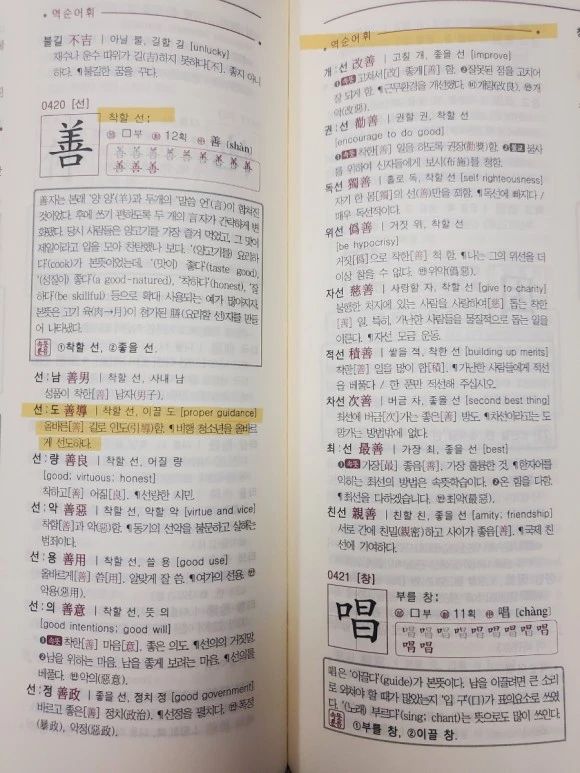 역순어휘
불길 不吉 | 아닐 불, 길할 길 [unlucky]
재수나 운수 따위가 길(吉)하지 못하다[不]. 좋지 아니
하다. ¶불길한 꿈을 꾸다.
0420 [선]
善
착할 선:
口부 12획 善 (shàn)
善善善善善善善
善善善善善
善자는 본래 '양 양'(羊)과 두개의 '말씀 언'(言)이 합쳐진
것이었다. 후에 쓰기 편하도록 두 개의 言자가 간략하게 변
화됐다. 당시 사람들은 양고기를 가장 즐겨 먹었고, 그 맛이
제일이라고 입을 모아 찬탄했나 보다. '(양고기를) 요리하
다'(cook)가 본뜻이었는데, '(맛이) 좋다'(taste good),
'(성질이) 좋다'(a good-natured), '착하다'(honest), '잘
하다'(be skillful) 등으로 확대 사용되는 예가 많아지자,
본뜻은 고기 육(肉→月)이 첨가된 膳(요리할 선)자를 만들
어 나타냈다.
속뜻훈음 ①착할 선, ②좋을 선.
선:남 善男 | 착할 선, 사내 남
성품이 착한[善] 남자(男子).
선:도 善導 | 착할 선, 이끌 도 [proper guidance]
올바른[善] 길로 인도(引導)함. ¶비행 청소년을 올바르
게 선도하다.
선:량 善良 | 착할 선, 어질 량
[good; virtuous; honest]
착하고[善] 어질[良]. ¶선량한 시민.
선:악 善惡 | 착할 선, 악할 악 [virtue and vice]
착함[善]과 악(惡)함. ¶동기의 선악을 불문하고 살해는
범죄이다.
선:용 善用 | 착할 선, 쓸 용 [good use]
올바르게[善] 씀[用]. 알맞게 잘 씀. ¶여가의 선용. ㉫
악용(惡用).
선:의 善意 | 착할 선, 뜻 의
[good intentions; good will]
❶속뜻 착한[善] 마음[意]. 좋은 의도. ¶선의의 거짓말.
❷남을 위하는 마음. 남을 좋게 보려는 마음. ¶선의를
베풀다. ㉫악의(惡意).
선:정 善政 | 좋을 선, 정치 정 [good government]
바르고 좋은[善] 정치(政治). ¶선정을 펼치다. ㉫폭정
(暴政), 악정(惡政).
역순어휘
개:선 改善 | 고칠 개, 좋을 선 [improve]
❶속뜻 고쳐서[改] 좋게[善] 함. ❷잘못된 점을 고치어
잘 되게 함. ¶근무환경을 개선했다. ㉥개량(改良). ㉫개
악(改惡).
권:선 勸善 | 권할 권, 착할 선
[encourage to do good]
❶속뜻 착한[善] 일을 하도록 권장(勸奬)함. ❷불교 불사
를 위하여 신자들에게 보시(布施)를 청함.
독선 獨善 | 홀로 독, 착할 선 [self righteousness]
자기 한 몸[獨]의 선(善)만을 꾀함. ¶독선에 빠지다 /
매우 독선적이다.
위선 僞善 | 거짓 위, 착할 선
[be hypocrisy]
거짓[僞]으로 착한[善] 척 함. ¶나는 그의 위선을 더
이상 참을 수 없다. ㉫위악(僞惡).
자선 慈善 | 사랑할 자, 착할 선 [give to charity]
불행한 처지에 있는 사람을 사랑하여[慈] 돕는 착한
[善] 일. 특히, 가난한 사람들을 물질적으로 돕는 일을
이른다. ¶자선 모금 운동.
적선 積善 | 쌓을 적, 착한 선 [building up merits]
착한[善] 일을 많이 함[積]. ¶가난한 사람들에게 적선
을 베풀다 / 한 푼만 적선해 주십시오.
차선 次善 | 버금 차, 좋을 선 [second best thing]
최선에 버금[次]가는 좋은[善] 방도. ¶차선이라고는 도
망가는 방법밖에 없다.
최:선 最善 | 가장 최, 좋을 선 [best]
❶속뜻 가장[最] 좋음[善]. 가장 훌륭한 것. ¶한자어를
익히는 최선의 방법은 속뜻학습이다. ❷온 힘을 다함.
¶최선을 다하겠습니다. ㉫최악(最惡).
친선 親善 | 친할 친, 좋을 선 [amity; friendship]
서로 간에 친밀(親密)하고 사이가 좋음[善]. ¶국제 친
선에 기여하다.
0421 [창]
唱
부를 창:
口부 11획 唱 (chàng)
唱唱唱唱唱唱唱唱唱
唱唱
唱은 '이끌다'(guide)가 본뜻이다. 남을 이끌려면 큰 소리
로 외쳐야 할 때가 많았는지 '입 구'(口)가 표의요소로 쓰였
다. '(노래) 부르다'(sing; chant)는 뜻으로도 많이 쓰인다.
속뜻훈음 ①부를 창, ②이끌 창.